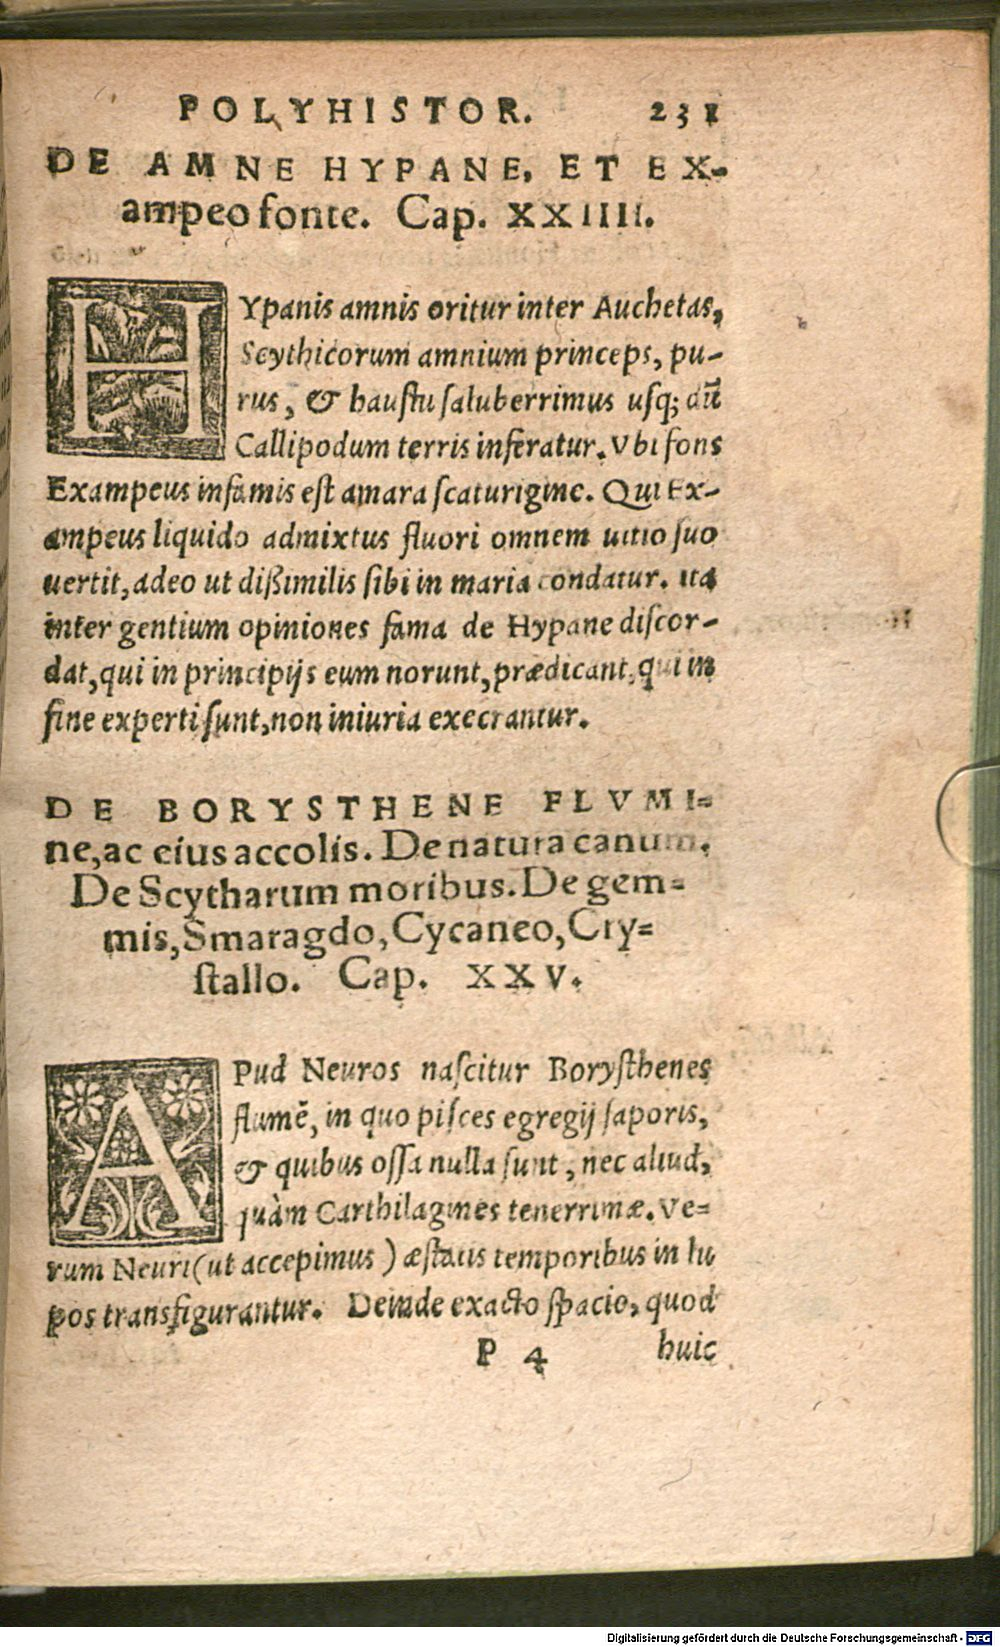 POLYHISTOR. 231
DE AMNE HYPANE, ET EX-
ampeo fonte. Cap. XXIIII.
HYpanis amnis oritur inter Auchetas,
Scythicorum amnium princeps, pu-
rus, & haustu saluberrimus usq; dũ
Callipodum terris inferatur. Vbi fons
Exampeus infamis est amara scaturigine. Qui Ex-
ampeus liquido admixtus fluori omnem uitio suo
uertit, adeo ut dißimilis sibi in maria condatur. Ita
inter gentium opiniones fama de Hypane discor-
dat, qui in principijs eum norunt, prædicant, qui in
fine experti sunt, non iniuria execrantur.
DE BORYSTHENE FLVMI-
ne, ac eius accolis. De natura canum.
De Scytharum moribus. De gem-
mis, Smaragdo, Cycaneo, Cry-
stallo. Cap. XXV.
APud Neuros nascitur Borysthenes
flumẽ, in quo pisces egregij saporis,
& quibus ossa nulla sunt, nec aliud,
quàm Carthilagines tenerrimæ. Ve-
rum Neuri (ut accepimus) æstatis temporibus in lu
pos transfigurantur. Deinde exacto spacio, quod
P 4 huic
Digitalisierung gefördert durch die Deutsche Forschungsgemeinschaft - DFG